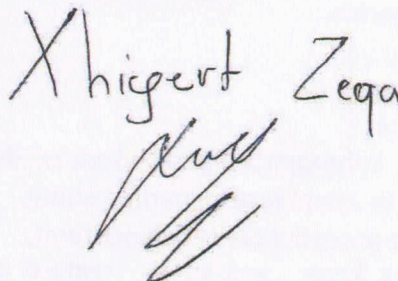 Xhigert Zega